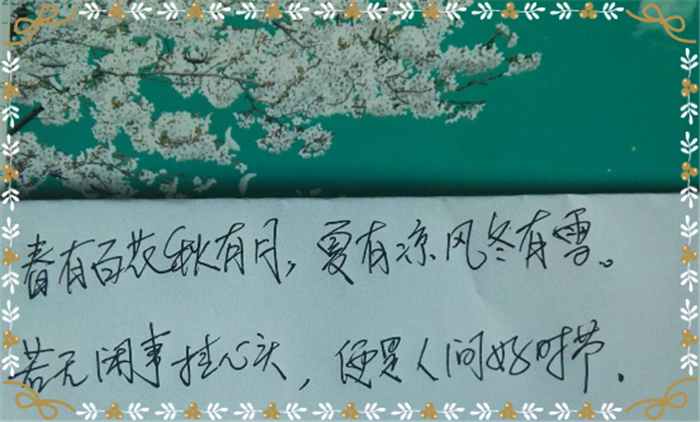 春有百花秋有月，夏有凉风冬有雪。
若无闲事挂心头，便是人间好时节．